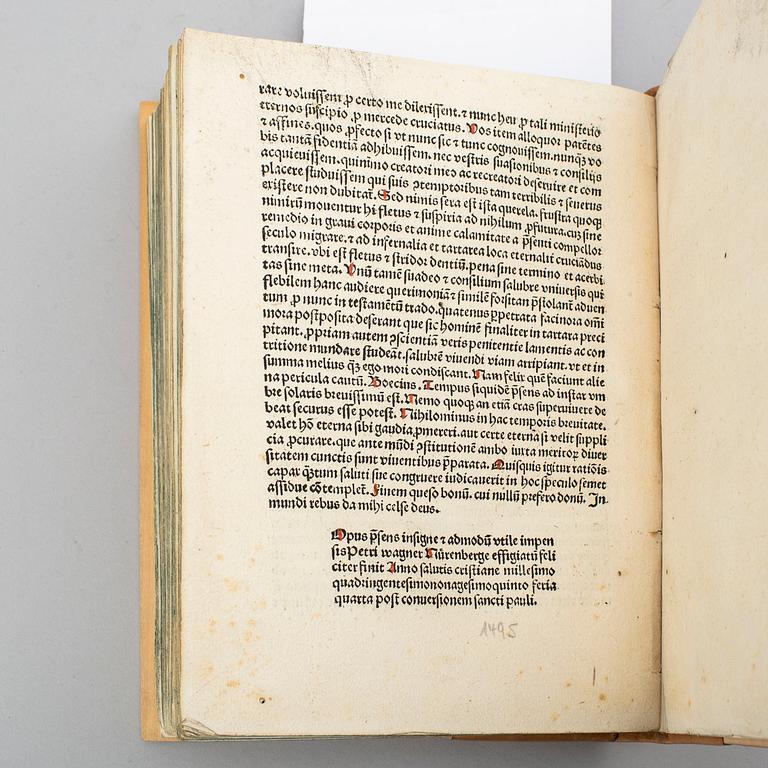 rare voluissem ꝓ certo me dilexissent. ⁊ nunc heu ꝓ tali ministerio
eternos suscipio ꝓ mercede cruciatus. Vos item alloquor parētes
⁊ affines. quos ꝓfecto si vt nunc sic ⁊ tunc cognouissem. nunq̄ꝫ vo
bis tantā fidentiā adhibuissem. nec vestris suasionibus ⁊ consilijs
acquieuissem. quinīmo creatori meo ac recreatori deseruire et com
placere studuissem qui suis ↄtemptoribus tam terribilis ⁊ seuerus
existere non dubitat̄. Sed nimis sera est ista querela. frustra quoqꝫ
nimirū mouentur hi fletus ⁊ suspiria ad nihilum ꝓfutura. cuꝫ sine
remedio in graui corporis et anime calamitate a p̄senti compellor
seculo migrare. ⁊ ad infernalia et tartarea loca eternalit̄ cruciādus
transire. vbi est fletus ⁊ stridor dentiū. pena sine termino et acerbi
tas sine meta. Vnū tamē suadeo ⁊ consilium salubre vniuersis qui
flebilem hanc audiere querimoniā ⁊ similē forsitan p̄stolant̄ aduen
tum ꝓ nunc in testamētū trado. quatenus ꝑpetrata facinora om̄i
mora postposita deserant que sic hominē finaliter in tartara preci
pitant. ꝓpriam autem ↄscientiā veris penitentie lamentis ac con
tritione mundare studeāt. salubrē viuendi viam arripiant. vt et in
summa melius qꝫ̄ ego mori condiscant. Nam felix quē faciunt alie
na pericula cautū. Boecius. Tempus siquidē p̄sens ad instar vm
bre solaris breuissimū est. Nemo quoqꝫ an etiā cras superuiuere de
beat securus esse potest. Nihilominus in hac temporis breuitate.
valet hō eterna sibi gaudia ꝓmereri. aut certe eternā si velit suppli
cia ꝓcurare. que ante mūdi ↄstitutionē ambo iuxta meritoꝝ diuer
sitatem cunctis sunt viuentibus p̄parata. Quisquis igitur ratiōis
capax qꝫ̄tum saluti sue congruere iudicauerit in hoc speculo semet
assidue cōtemplet̄. Finem queso bonū. cui nullū prefero donū. In
mundi rebus da mihi celse deus.
Opus p̄sens insigne ⁊ admodū vtile impen
sis Petri wagner Nürenberge effigiatū feli
citer finit Anno salutis cristiane millesimo
quadringentesimononagesimoquinto feria
quarta post conuersionem sancti pauli.
1495